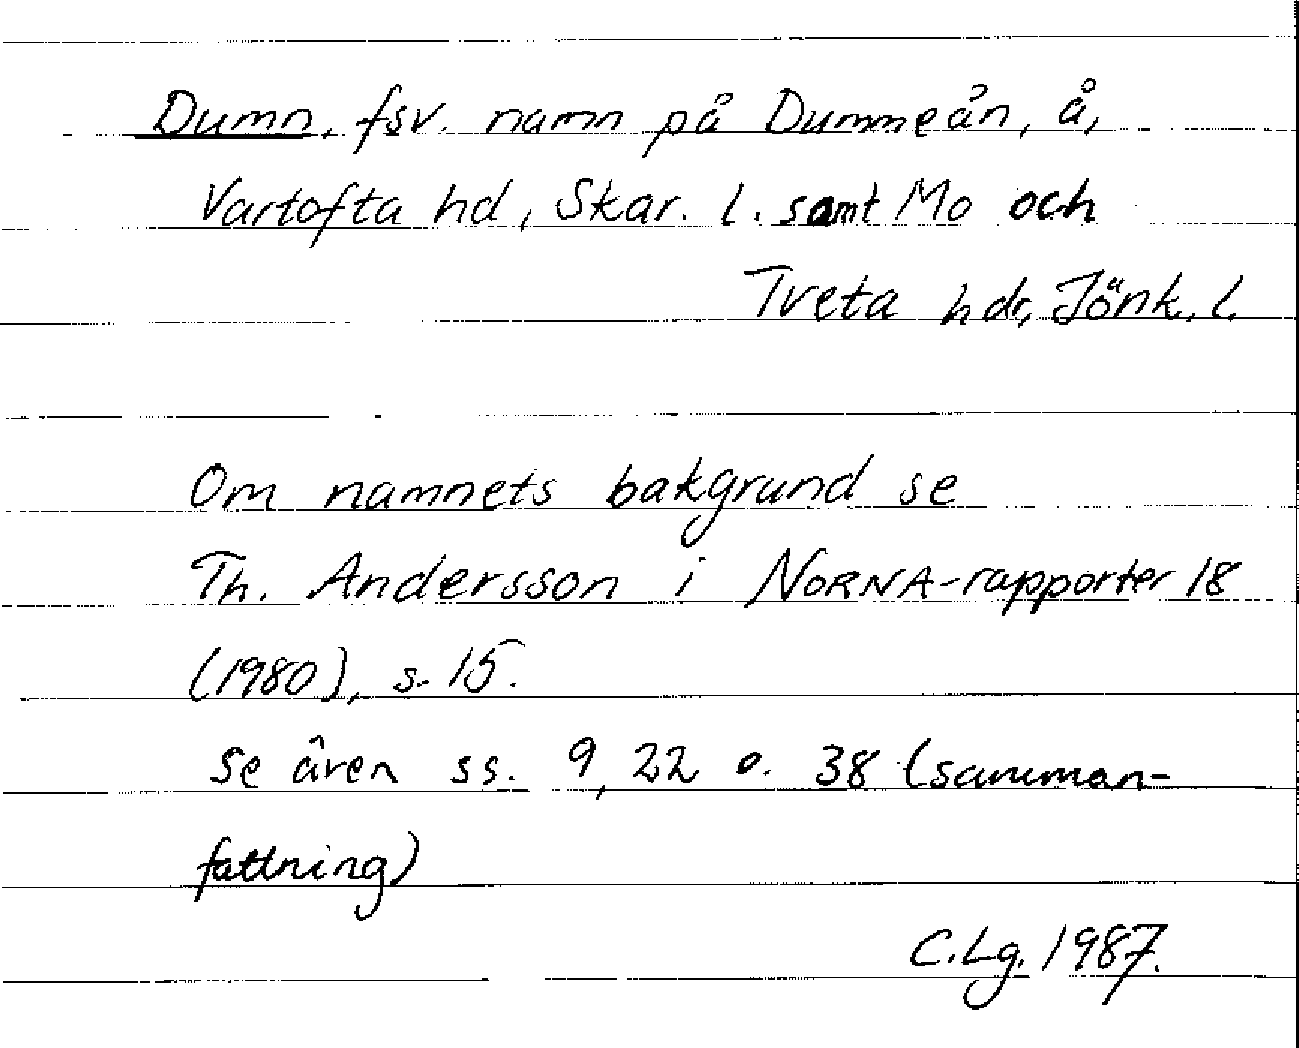 Dumn, fsv. namn på Dummeån, å,
Vartofta hd, Skar. l. samt Mo och
Tveta hdr, Jönk. l.
Om namnets bakgrund se
Th. Andersson i NORNA-rapporter 18
(1980), s. 15.
Se även ss. 9, 22 o. 38 (samman-
fattning)
C.Lg. 1987.